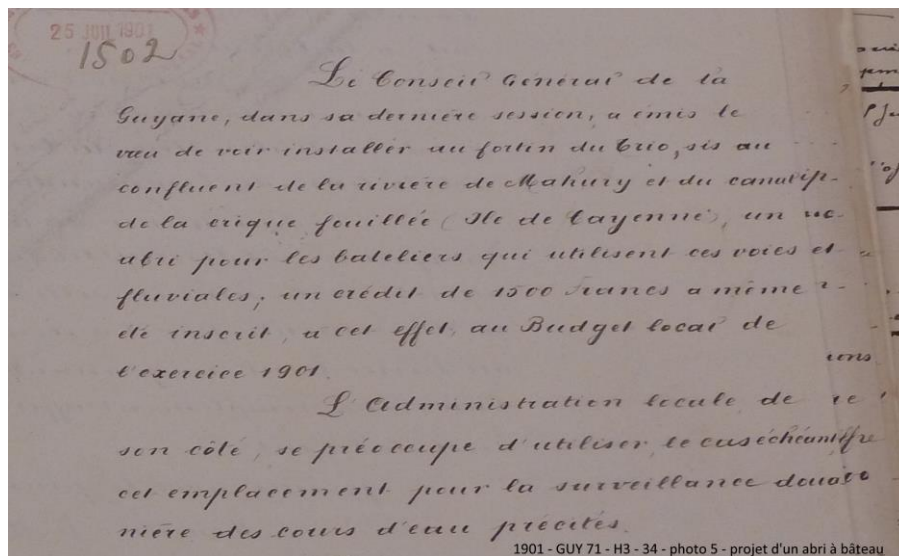 25 JUIL 1901
1502
Le Conseil Général de la
Guyane, dans sa dernière session, a émis le
vœu de voir installer au fortin du Trio, sis au
confluent de la rivière de Mahury et du canal
de la crique fouillée (Ile de Cayenne), un
abri pour les bateliers qui utilisent ces voies
fluviales; un crédit de 1500 francs a même
été inscrit, à cet effet, au Budget local de
l'exercice 1901.
L'Administration locale de
son côté, se préoccupe d'utiliser, le cas échéant
cet emplacement pour la surveillance doua-
nière des cours d'eau précités.
1901 - GUY 71 - H3 - 34 - photo 5 - projet d'un abri à bâteau